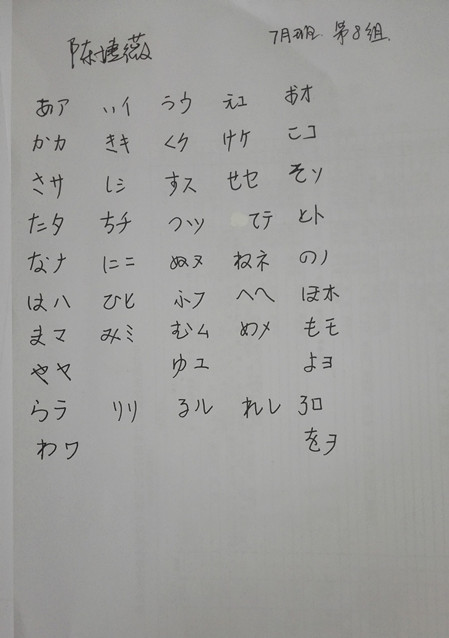 陈婕薇 7月班 第8组
あア いイ うウ えエ おオ
かカ きキ くク けケ こコ
さサ しシ すス せセ そソ
たタ ちチ つツ てテ とト
なナ にニ ぬヌ ねネ のノ
はハ ひヒ ふフ へヘ ほホ
まマ みミ むム めメ もモ
やヤ ゆユ よヨ
らラ りリ るル れレ ろロ
わワ をヲ